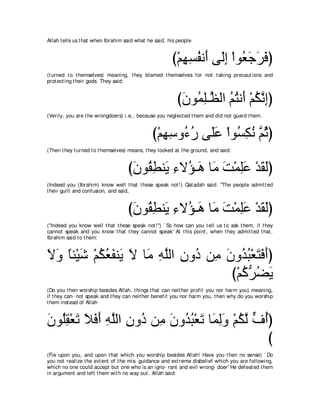 Allah tells us that when Ibrahim said what he said, his people
(فَرَجَعُوا إِلَى أَنفُسِهِمْ)
(turned to themselves) meaning, they blamed themselves for not taking precautions and
protecting their gods. They said:
(إِنَّكُمْ أَنتُمُ الظَّـلِمُونَ)
(Verily, you are the wrongdoers) i.e., because you neglected them and did not guard them.
(ثُمَّ نُكِسُوا عَلَى رُءُوسِهِمْ)
(Then they turned to themselves) means, they looked at the ground, and said:
(لَقَدْ عَلِمْتَ مَا هَـؤُلاءِ يَنطِقُونَ)
(Indeed you (Ibrahim) know well that these speak not!) Qatadah said: "The people admitted
their guilt and confusion, and said,
(لَقَدْ عَلِمْتَ مَا هَـؤُلاءِ يَنطِقُونَ)
("Indeed you know well that these speak not!") ` So how can you tell us to ask them, if they
cannot speak and you know that they cannot speak' At this point, when they admitted that,
Ibrahim said to them:
(أَفَتَعْبُدُونَ مِن دُونِ اللَّهِ مَا لاَ يَنفَعُكُمْ شَيْئاً وَلاَ
يَضُرُّكُمْ)
(Do you then worship besides Allah, things that can neither profit you nor harm you) meaning,
if they can- not speak and they can neither benefit you nor harm you, then why do you worship
them instead of Allah
(أُفٍّ لَّكُمْ وَلِمَا تَعْبُدُونَ مِن دُونِ اللَّهِ أَفَلاَ تَعْقِلُونَ
)
(Fie upon you, and upon that which you worship besides Allah! Have you then no sense) ` Do
you not realize the extent of the mis- guidance and extreme disbelief which you are following,
which no one could accept but one who is an igno- rant and evil wrong- doer' He defeated them
in argument and left them with no way out. Allah said: